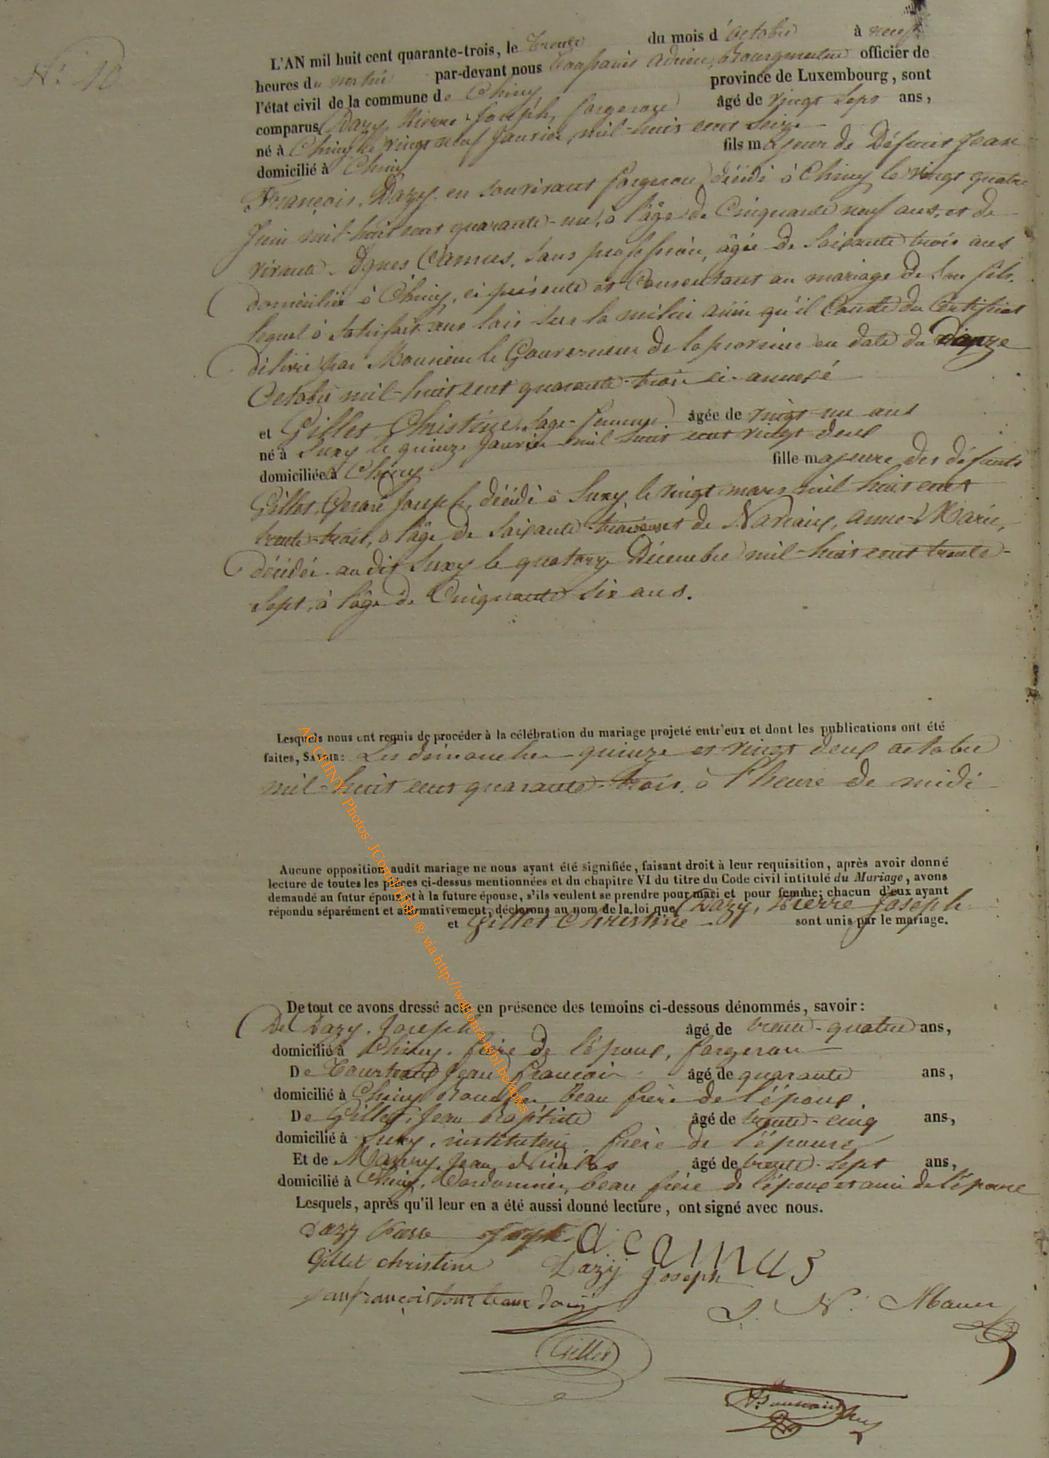 N° 10
L'AN mil huit cent quarante-trois, le trente du mois d'octobre à neuf
heures du matin par-devant nous Adrien, Bourgmestre officier de
l'état civil de la commune de Chiny province de Luxembourg, sont
comparus Dazy, Pierre-Joseph, forgeron âgé de vingt sept ans,
né à Chiny le vingt neuf Janvier, mil-huit cent seize
domicilié à Chiny fils majeur de Défunt Jean
François, Dazy en son vivant forgeron décédé à Chiny le vingt quatre
Juin mil-huit cent quarante-un, à l'âge de Cinquante neuf ans, et de
vivante Agnes Camus, sans profession, âgée de Soixante trois ans
domiciliée à Chiny, ci présente et Consentant au mariage de Son fils,
lequel à Satisfait aux lois sur la milice ainsi qu'il Conste du Certificat
délivré par Monsieur le Gouverneur de la province en date du
Octobre mil-huit cent quarante-trois ci-annexé
et Gillet Christine, Sage-femme âgée de vingt un ans
né à Suxy le quinze Janvier mil huit cent vingt deux
domiciliée à Chiny fille majeure des défunts
Gillet, Joseph, décédé à Suxy le vingt mars mil huit cent
trente-trois, à l'âge de Soixante et de Anne-Marie,
décédée audit Suxy le quatorze Décembre mil-huit cent trente-
Sept, à l'âge de Cinquante Six ans.
Lesquels nous ont requis de procéder à la célébration du mariage projeté entr'eux et dont les publications ont été
faites, Savoir: Les dimanches quinze et vingt deux octobre
mil-huit cent quarante-trois, à l'heure de midi
Aucune opposition audit mariage ne nous ayant été signifiée, faisant droit à leur requisition, après avoir donné
lecture de toutes les pièces ci-dessus mentionnées et du chapitre VI du titre du Code civil intitulé du Mariage, avons
demandé au futur époux et à la future épouse, s'ils veulent se prendre pour mari et pour femme; chacun d'eux ayant
répondu séparément et affirmativement, déclarons au nom de la loi que Dazy, Pierre Joseph
et Gillet Christine sont unis par le mariage.
De tout ce avons dressé acte en présence des temoins ci-dessous dénommés, savoir:
De Dazy, Joseph âgé de trente-quatre ans,
domicilié à Chiny, frère de l'époux, forgeron
De Jean François âgé de quarante ans,
domicilié à Chiny beau frère de l'époux.
De Gillet, Jean Baptiste âgé de trente-cinq ans,
domicilié à Suxy, instituteur frère de l'épouse
Et de Jean Nicolas âgé de trente-sept ans,
domicilié à Chiny, Cordonnier, beau frère de l'époux et ami de l'épouse
Lesquels, après qu'il leur en a été aussi donné lecture, ont signé avec nous.
Dazy Joseph acamus
Gillet christine Dazÿ Joseph
jean françois J. N.
Gillet
ACCHINY Photos